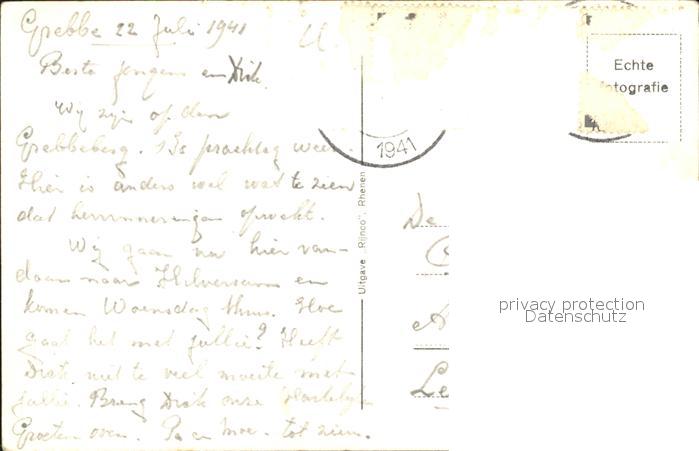 Grebbe 22 Juli 1941
Beste Jongens en Dick.
Wij zijn op den
Grebbeberg. 't Is prachtig weer.
Hier is anders wel wat te zien
dat herrinneringen opwekt.
Wij gaan nu hier van-
daan naar Hilversum en
komen Woensdag thuis. Hoe
gaat het met jullie? Heeft
Dick niet te veel moeite met
jullie. Breng Dick onze Hartelijke
Groeten over. Pa en Moe. tot ziens.
Uitgave "Rijnco", Rhenen
1941
Echte
fotografie
De
Le
privacy protection
Datenschutz